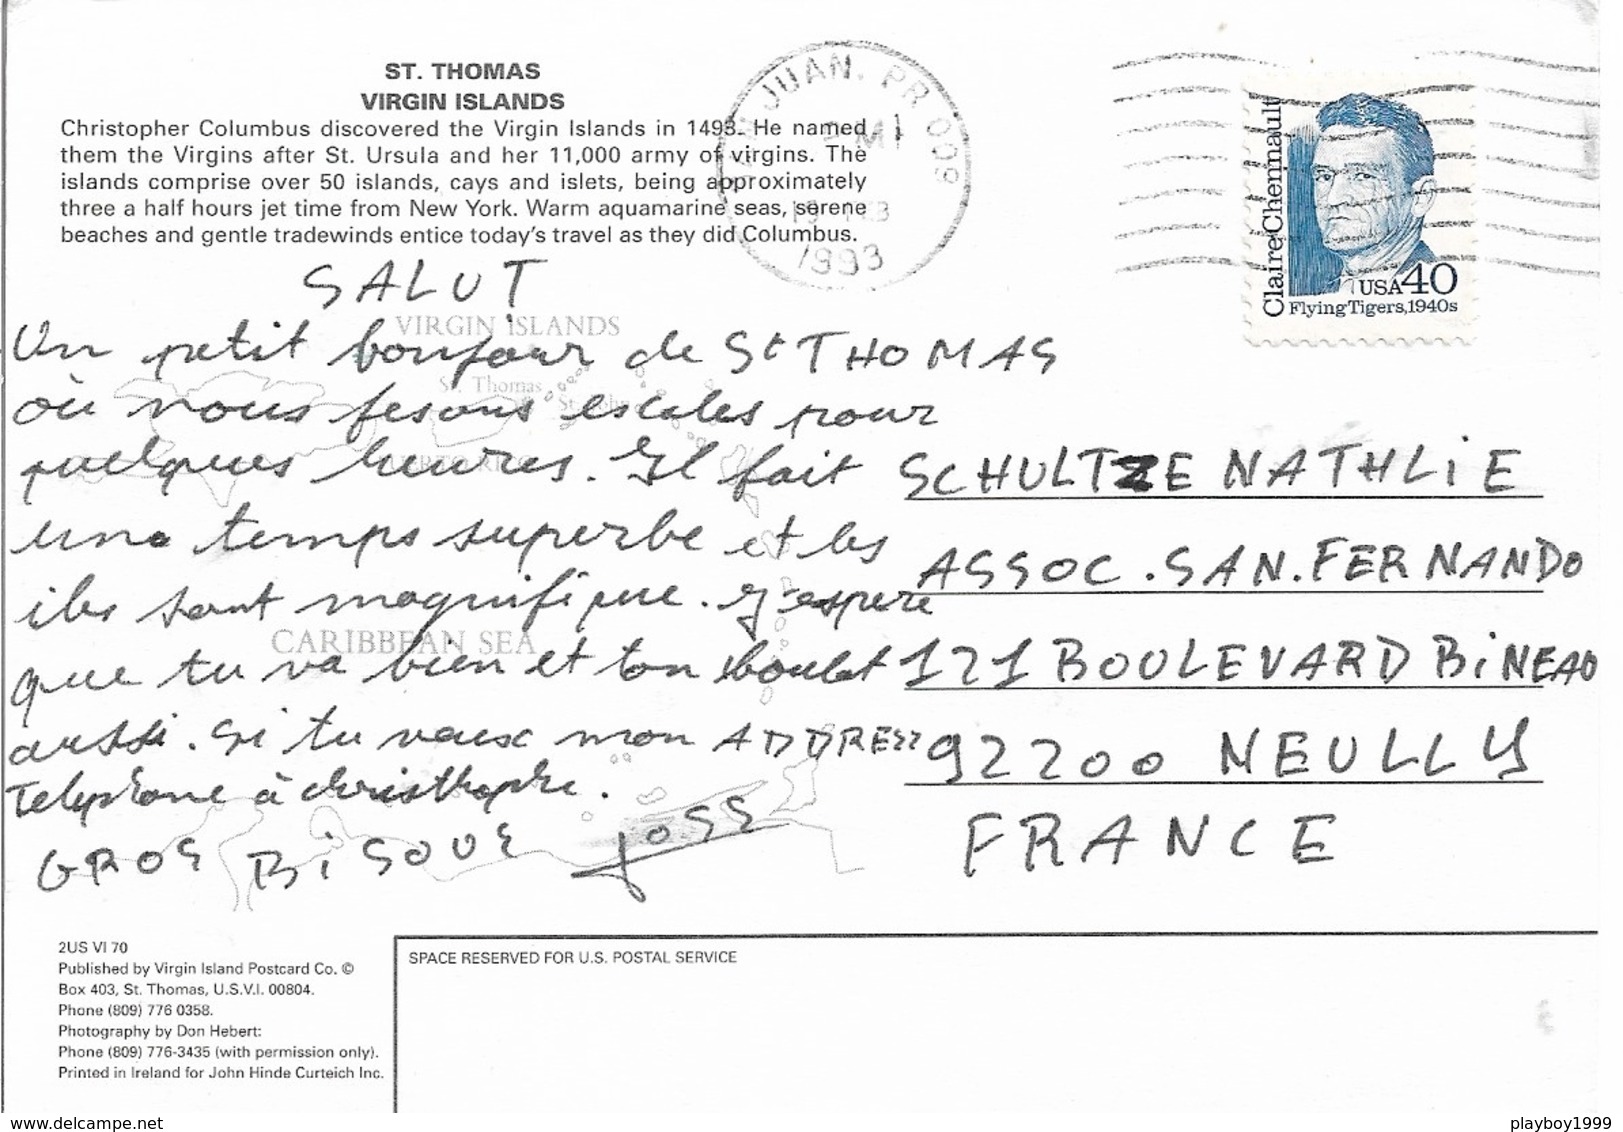 ST. THOMAS
VIRGIN ISLANDS
Christopher Columbus discovered the Virgin Islands in 1493. He named
them the Virgins after St. Ursula and her 11,000 army of virgins. The
islands comprise over 50 islands, cays and islets, being approximately
three a half hours jet time from New York. Warm aquamarine seas, serene
beaches and gentle tradewinds entice today's travel as they did Columbus.
JUAN. PR 009
1993
Claire Chennault
USA 40
Flying Tigers, 1940s
SALUT
VIRGIN ISLANDS
Un petit bonjour de St THOMAS
St. Thomas
St. John
où nous fesons escales pour
quelques heures. Il fait
PUERTO RICO
une temps superbe et les
iles sont magnifique. J'espere
CARIBBEAN SEA
que tu va bien et ton boulot
aussi. Si tu veux mon ADDRESS
Telephone à christhophe.
GROS BISOUS JOSS
SCHULTZE NATHLIE
ASSOC. SAN. FERNANDO
121 BOULEVARD BINEAU
92200 NEULLY
FRANCE
2US VI 70
Published by Virgin Island Postcard Co. ©
Box 403, St. Thomas, U.S.V.I. 00804.
Phone (809) 776 0358.
Photography by Don Hebert:
Phone (809) 776-3435 (with permission only).
Printed in Ireland for John Hinde Curteich Inc.
SPACE RESERVED FOR U.S. POSTAL SERVICE
www.delcampe.net
playboy1999